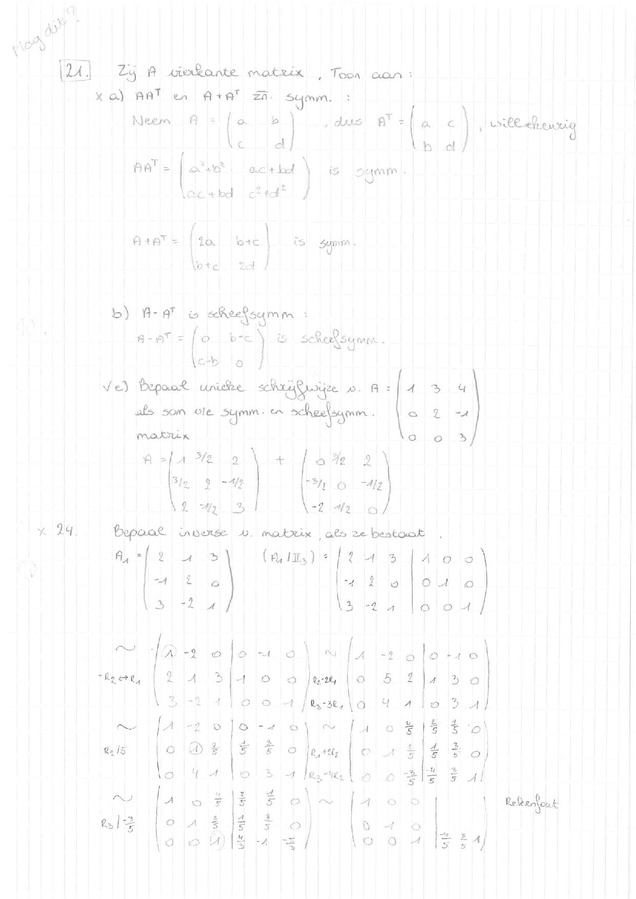 Mag dit?
21. Zij A vierkante matrix, Toon aan:
x a) AAᵀ en A+Aᵀ zn. symm. :
Neem A = (a b; c d), dus Aᵀ = (a c; b d), willekeurig
AAᵀ = (a²+b² ac+bd; ac+bd c²+d²) is symm.
A+Aᵀ = (2a b+c; b+c 2d) is symm.
b) A-Aᵀ is scheefsymm :
A-Aᵀ = (0 b-c; c-b 0) is scheefsymm.
√e) Bepaal unieke schrijfwijze v. A = (1 3 4; 0 2 -1; 0 0 3)
als som v/e symm. en scheefsymm.
matrix
A = (1 3/2 2; 3/2 2 -1/2; 2 -1/2 3) + (0 3/2 2; -3/2 0 -1/2; -2 1/2 0)
x 24. Bepaal inverse v. matrix, als ze bestaat.
A₁ = (2 1 3; -1 2 0; 3 -2 1) (A₁ | II₃) = (2 1 3 | 1 0 0; -1 2 0 | 0 1 0; 3 -2 1 | 0 0 1)
~ -R₂↔R₁ (1 -2 0 | 0 -1 0; 2 1 3 | 1 0 0; 3 -2 1 | 0 0 1) ~ R₂-2R₁ R₃-3R₁ (1 -2 0 | 0 -1 0; 0 5 2 | 1 3 0; 0 4 1 | 0 3 1)
~ R₂/5 (1 -2 0 | 0 -1 0; 0 1 | 0; 0 4 1 | 0 3 1) ~ R₁+2R₂ R₃-4R₂ (1 0 | 0; 0 1 | 0; 0 0 | 1)
~ (1 0 | 0; 0 1 | 0; 0 0 1 | -1) ~ (1 0 0; 0 1 0; 0 0 1 | 1)
Rekenfout